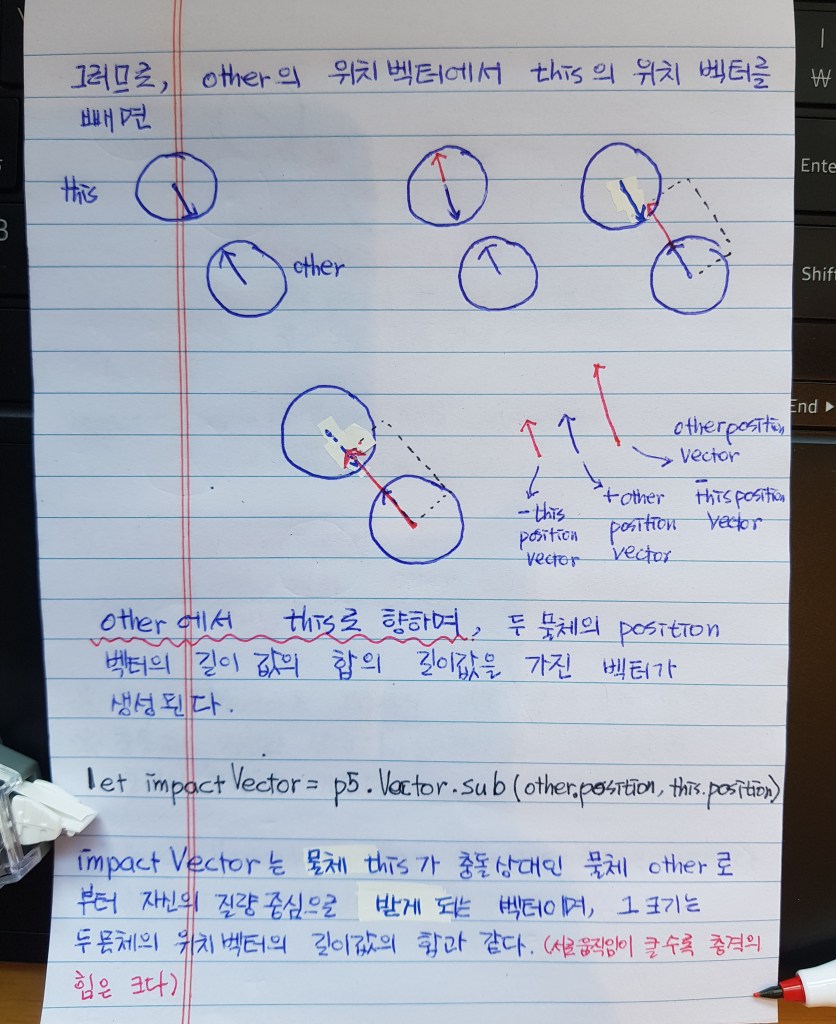 그러므로, other의 위치벡터에서 this의 위치 벡터를
빼면
this
other
other position
vector
- this position
vector
- this
position
vector
+ other
position
vector
other에서 this로 향하며, 두 물체의 position
벡터의 길이 값의 합의 길이값을 가진 벡터가
생성된다.
let impactVector = p5.Vector.sub(other.position, this.position)
impactVector는 물체 this가 충돌상대인 물체 other로
부터 자신의 질량중심으로 받게 되는 벡터이며, 그 크기는
두 물체의 위치벡터의 길이값의 합과 같다. (서로 움직임이 클수록 충격의
힘은 크다)
Ente
Shift
End ▶
₩